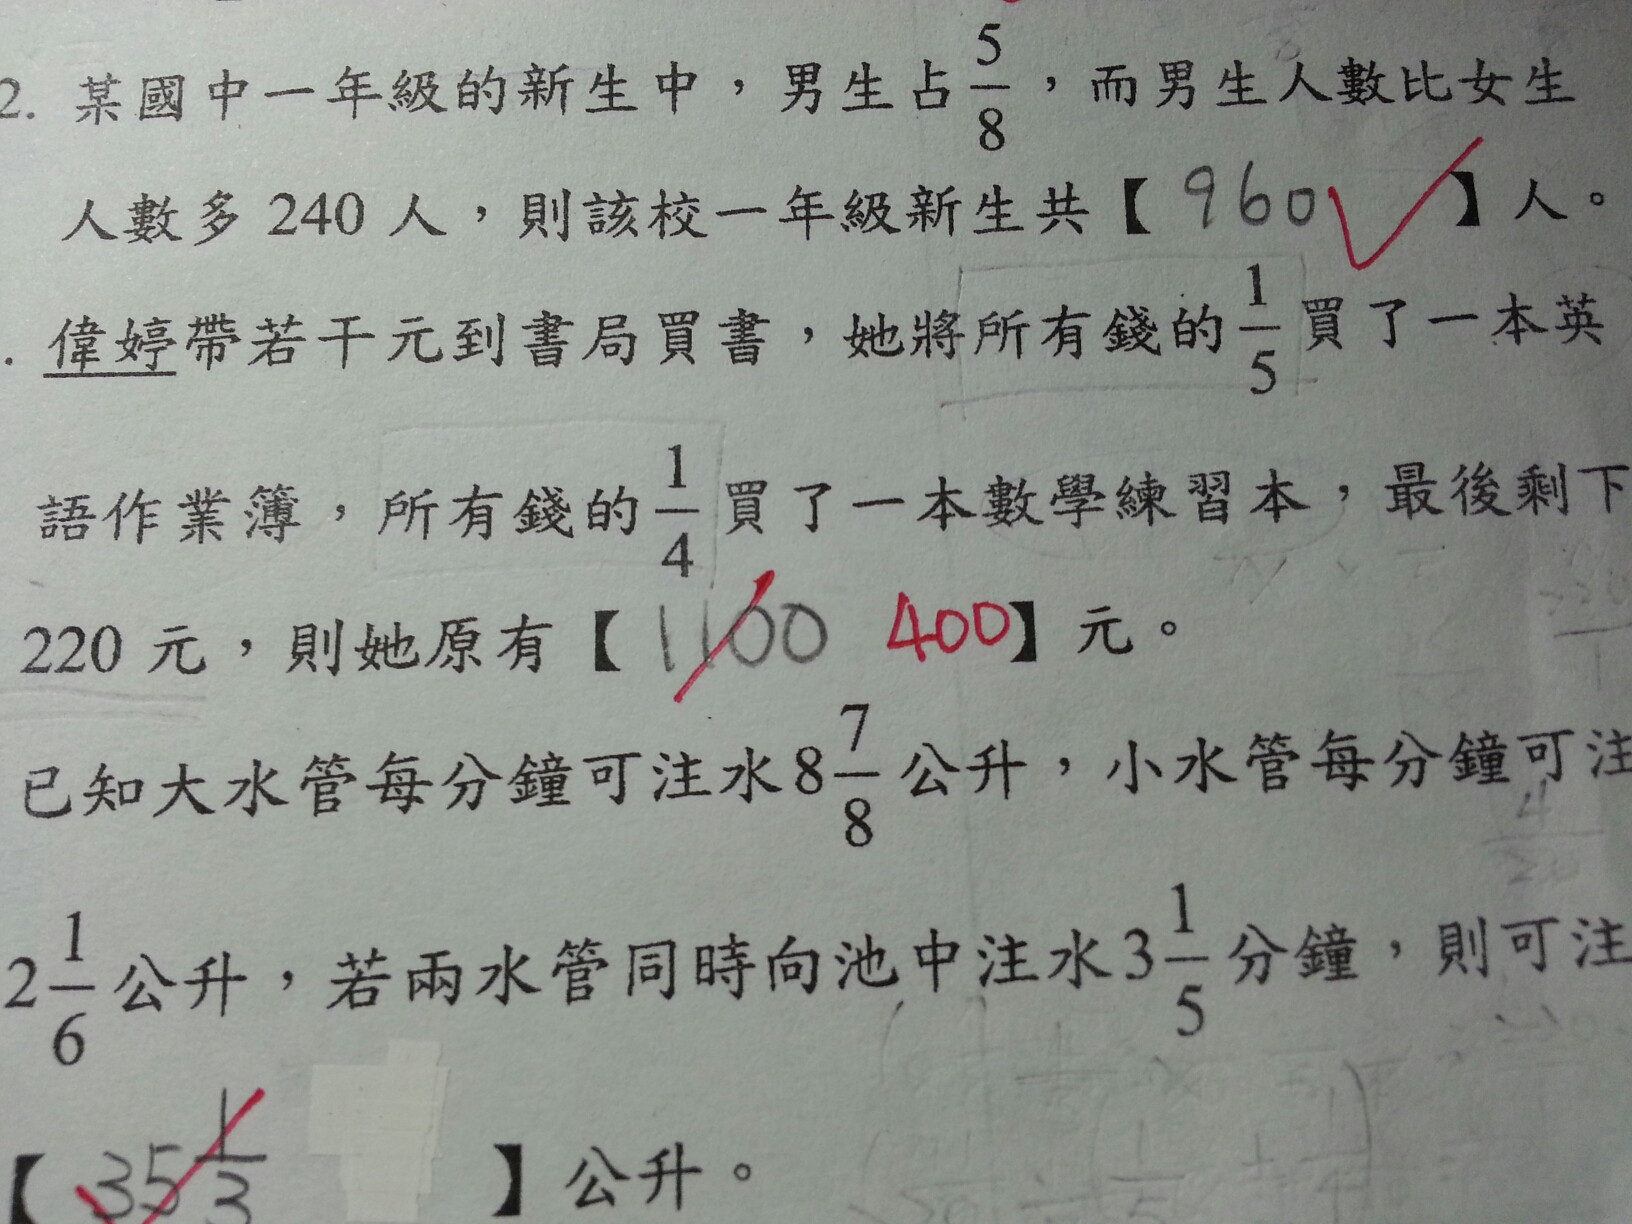 2. 某國中一年級的新生中，男生占5/8，而男生人數比女生
人數多 240 人，則該校一年級新生共【 960 】人。
. 偉婷帶若干元到書局買書，她將所有錢的1/5買了一本英
語作業簿，所有錢的1/4買了一本數學練習本，最後剩下
220 元，則她原有【 1100 400】元。
已知大水管每分鐘可注水8 7/8公升，小水管每分鐘可注
2 1/6公升，若兩水管同時向池中注水3 1/5分鐘，則可注
【 35 1/3 】公升。